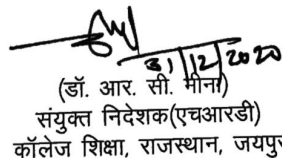 31/12/2020
(डॉ. आर. सी. मीना)
संयुक्त निदेशक(एचआरडी)
कॉलेज शिक्षा, राजस्थान, जयपुर